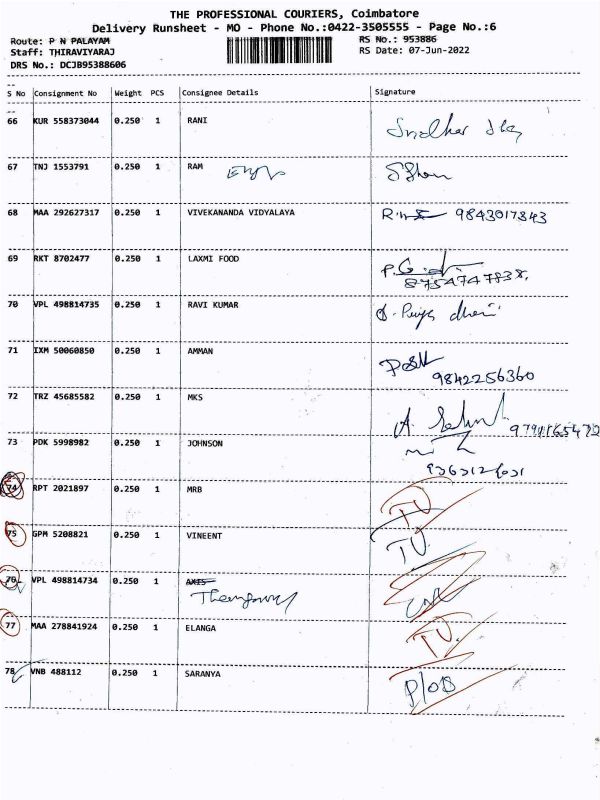 THE PROFESSIONAL COURIERS, Coimbatore
Delivery Runsheet - MO - Phone No.:0422-3505555 - Page No.:6
Route: P N PALAYAM RS No.: 953886
Staff: THIRAVIYARAJ RS Date: 07-Jun-2022
DRS No.: DCJB95388606
S No Consignment No Weight PCS Consignee Details Signature
66 KUR 558373044 0.250 1 RANI
67 TNJ 1553791 0.250 1 RAM
68 MAA 292627317 0.250 1 VIVEKANANDA VIDYALAYA 9843017843
69 RKT 8702477 0.250 1 LAXMI FOOD
8754747838.
70 VPL 498814735 0.250 1 RAVI KUMAR
71 IXM 50060850 0.250 1 AMMAN
9842256360
72 TRZ 45685582 0.250 1 MKS
73 PDK 5998982 0.250 1 JOHNSON
74 RPT 2021897 0.250 1 MRB TU
75 GPM 5208821 0.250 1 VINEENT TU.
76 VPL 498814734 0.250 1 AXIS
77 MAA 278841924 0.250 1 ELANGA TU.
78 VNB 488112 0.250 1 SARANYA P/OB